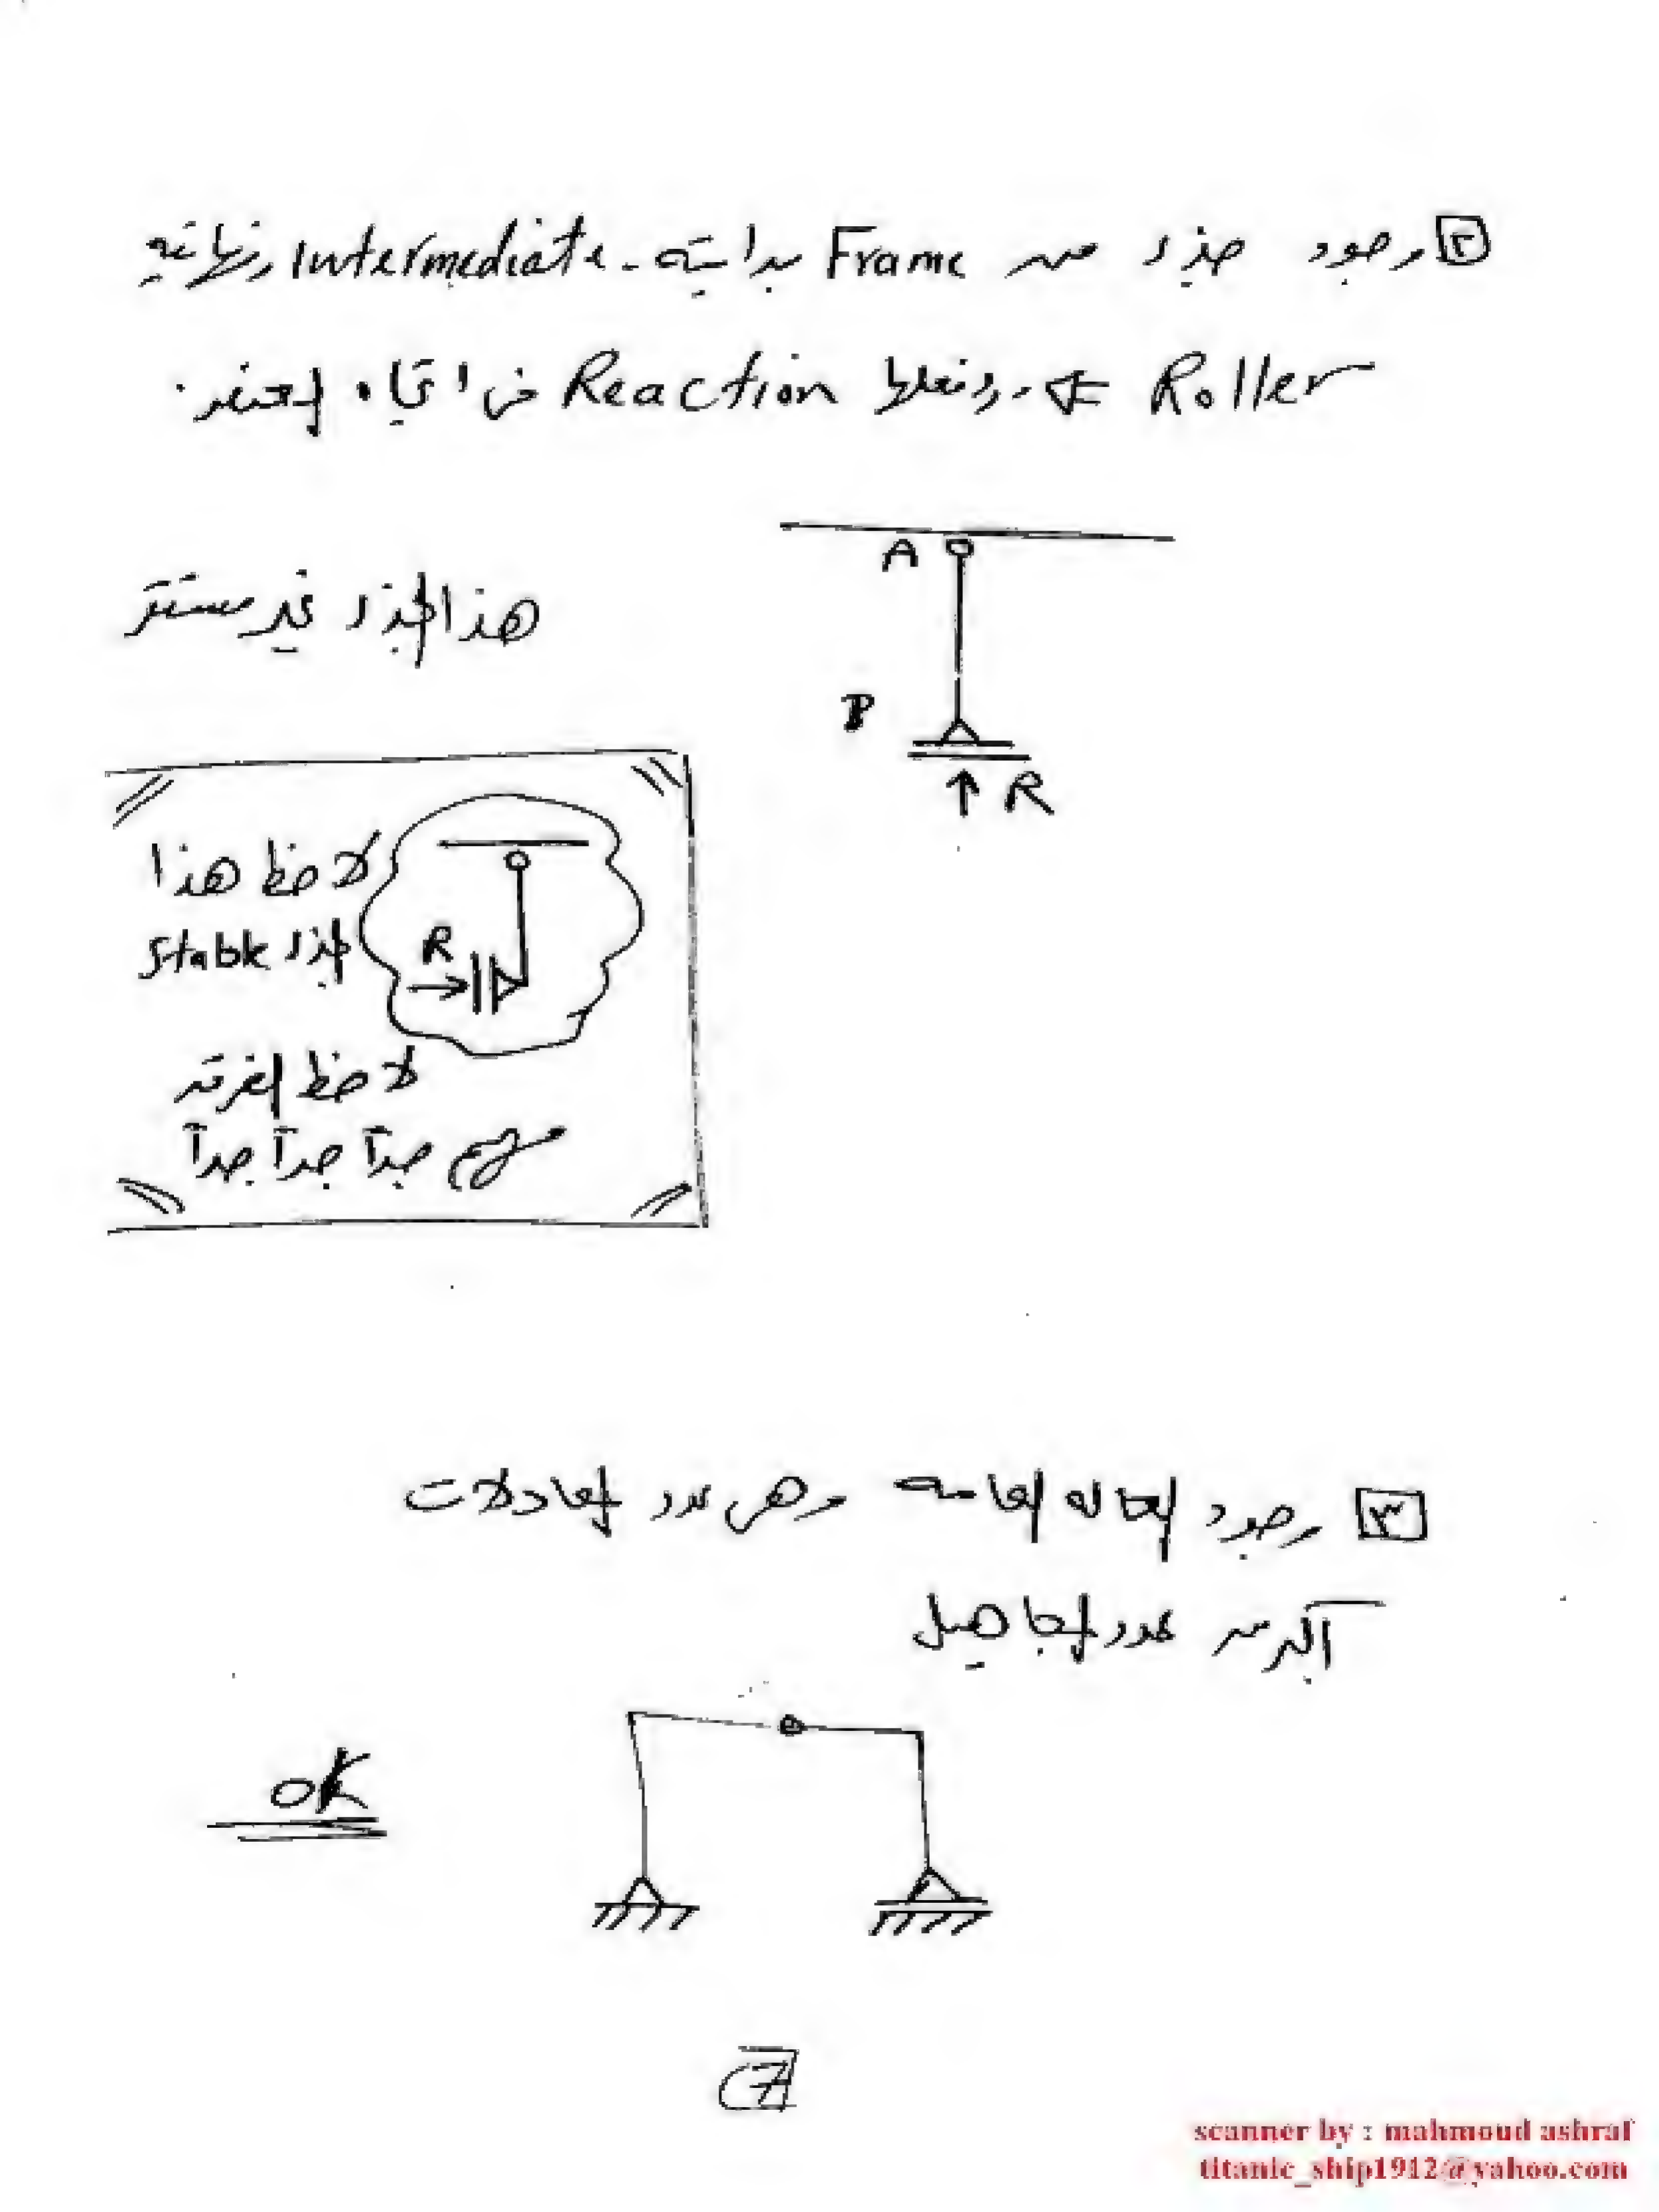 ٢ وجود جزء من Frame بدايته Intermediate ونهايته
Roller ⇐ ورد فعل Reaction فى اتجاه العضو.
A
هذا الجزء غير مستقر
B
R
لاحظ هذا
الجزء Stable
R
لاحظ الفرق
مهم جداً جداً جداً
٣ وجود الحاله العامه وهى عدد المعادلات
أكبر من عدد المجاهيل
OK
7
scanner by : mahmoud ashraf
titanic_ship1912@yahoo.com